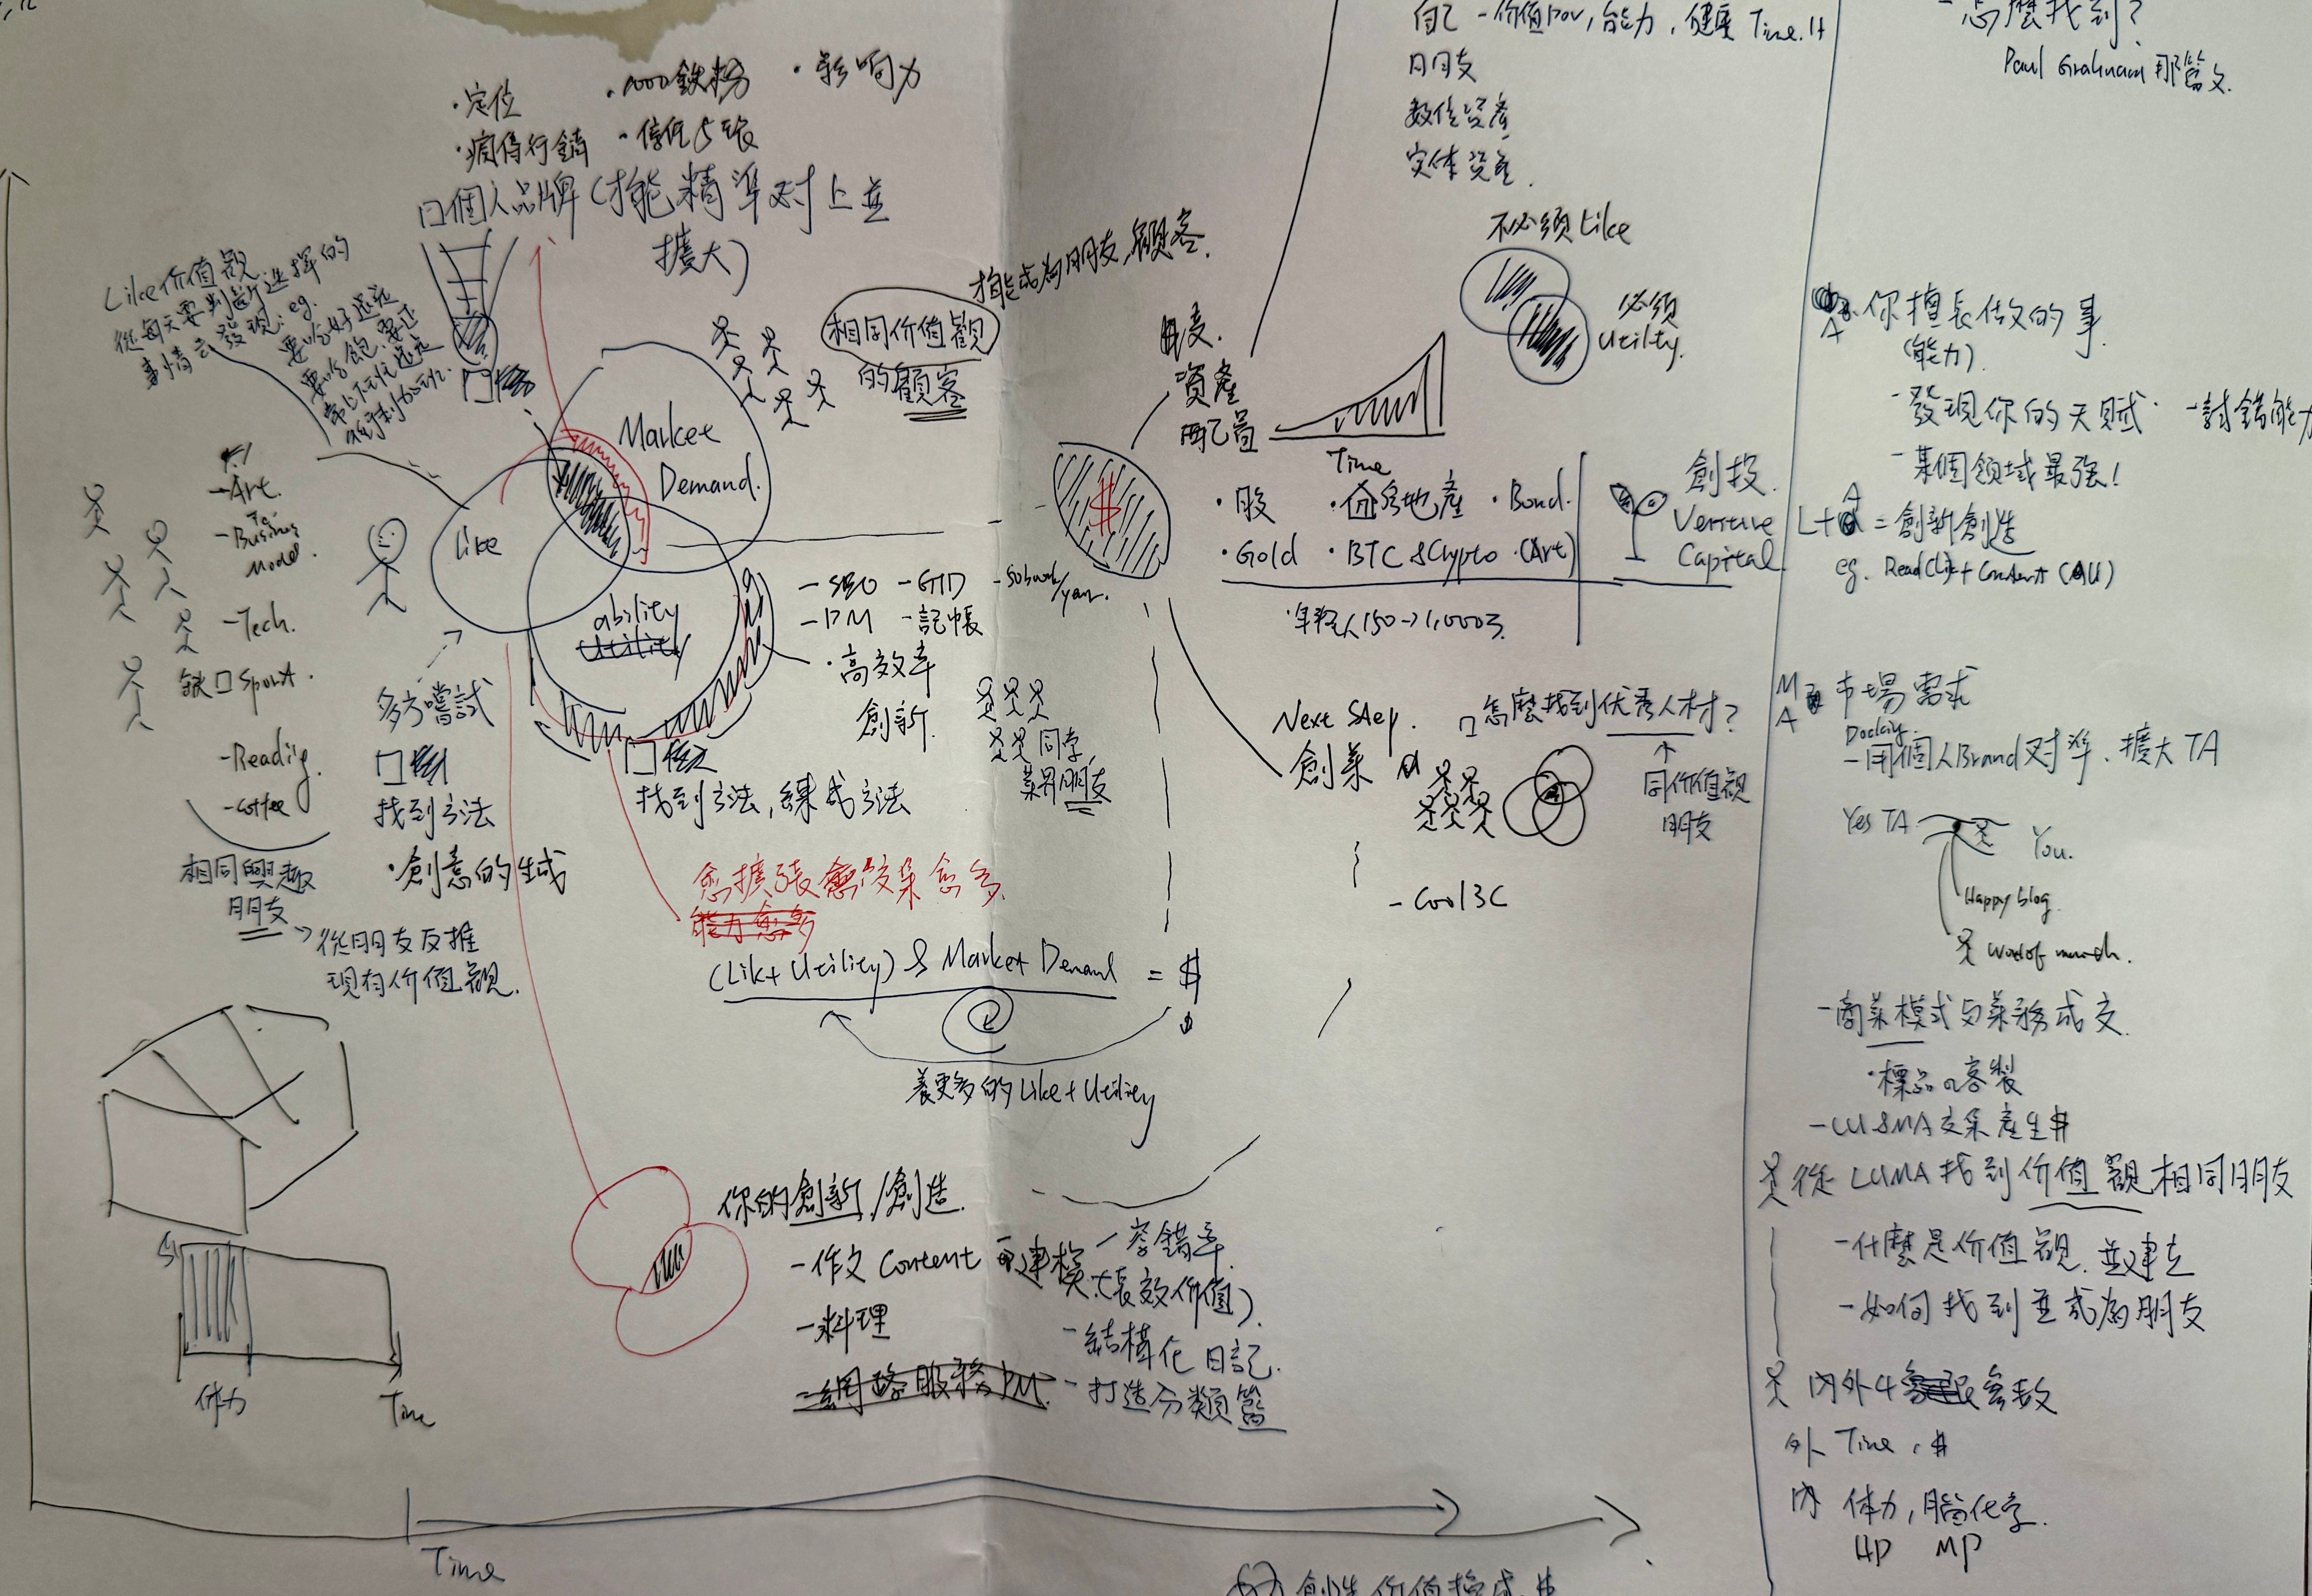 ・定位
・1000鉄粉
・影响力
・病毒行銷
口個人品牌(才能精準对上並
擴大)
Like价值觀
從每天要判斷選擇的
事情去發現. eg.
Market
Demand.
相同价值觀
的顧客
才能成為朋友,顧客.
Like
ability
Utility
-Art.
To
-Business
Model.
-Tech.
Sport.
-Reading.
-coffee
相同興趣
朋友
→從朋友反推
現有价值觀.
多方嚐試
找到方法
・創意的生成
找到方法,練成方法
-SEO -GTD
-PM -記帳
・高效率
創新.
同学,
業界朋友
愈擴張愈交集愈多.
能力愈多
(Like+Utility) & Market Demand = $
養更多的Like+Utility
体力
Time
你的創新/創造.
-作文 Content
-料理
-網路服務PM.
-容錯率
(長效价值)
-結構化日記.
-打造分類籃
Time
自己 -价值
能力,健康 Time.
朋友
数位資產
实体資產.
不必須Like
必須
Utility.
資產
配置
$
Time
・股
地產
・Bond.
・Gold ・BTC &Crypto ・(Art)
創投.
Venture
Capital
・年輕人150→1,000万.
Next Step.
創業
口怎麼找到优秀人材?
↑
同价值觀
朋友
-Cool3C
創造价值換成$
-怎麼找到?
Paul Graham 那篇文.
A
你擅長做的事.
(能力).
-發現你的天賦.
-試錯能力
-某個领域最強!
L+A=創新創造
eg. Read(Lik)+Content(AU)
市場需求
-用個人Brand对準、擴大TA
Yes TA
You.
Happy blog
Word of mouth.
-商業模式与業務成交.
・標品 客製
-LU&MA交集產生$
從LUMA找到价值觀相同朋友
-什麼是价值觀.並建立
-如何找到並成為朋友
内外4 参数
外 Time, $
内 体力,腦化学.
HP MP